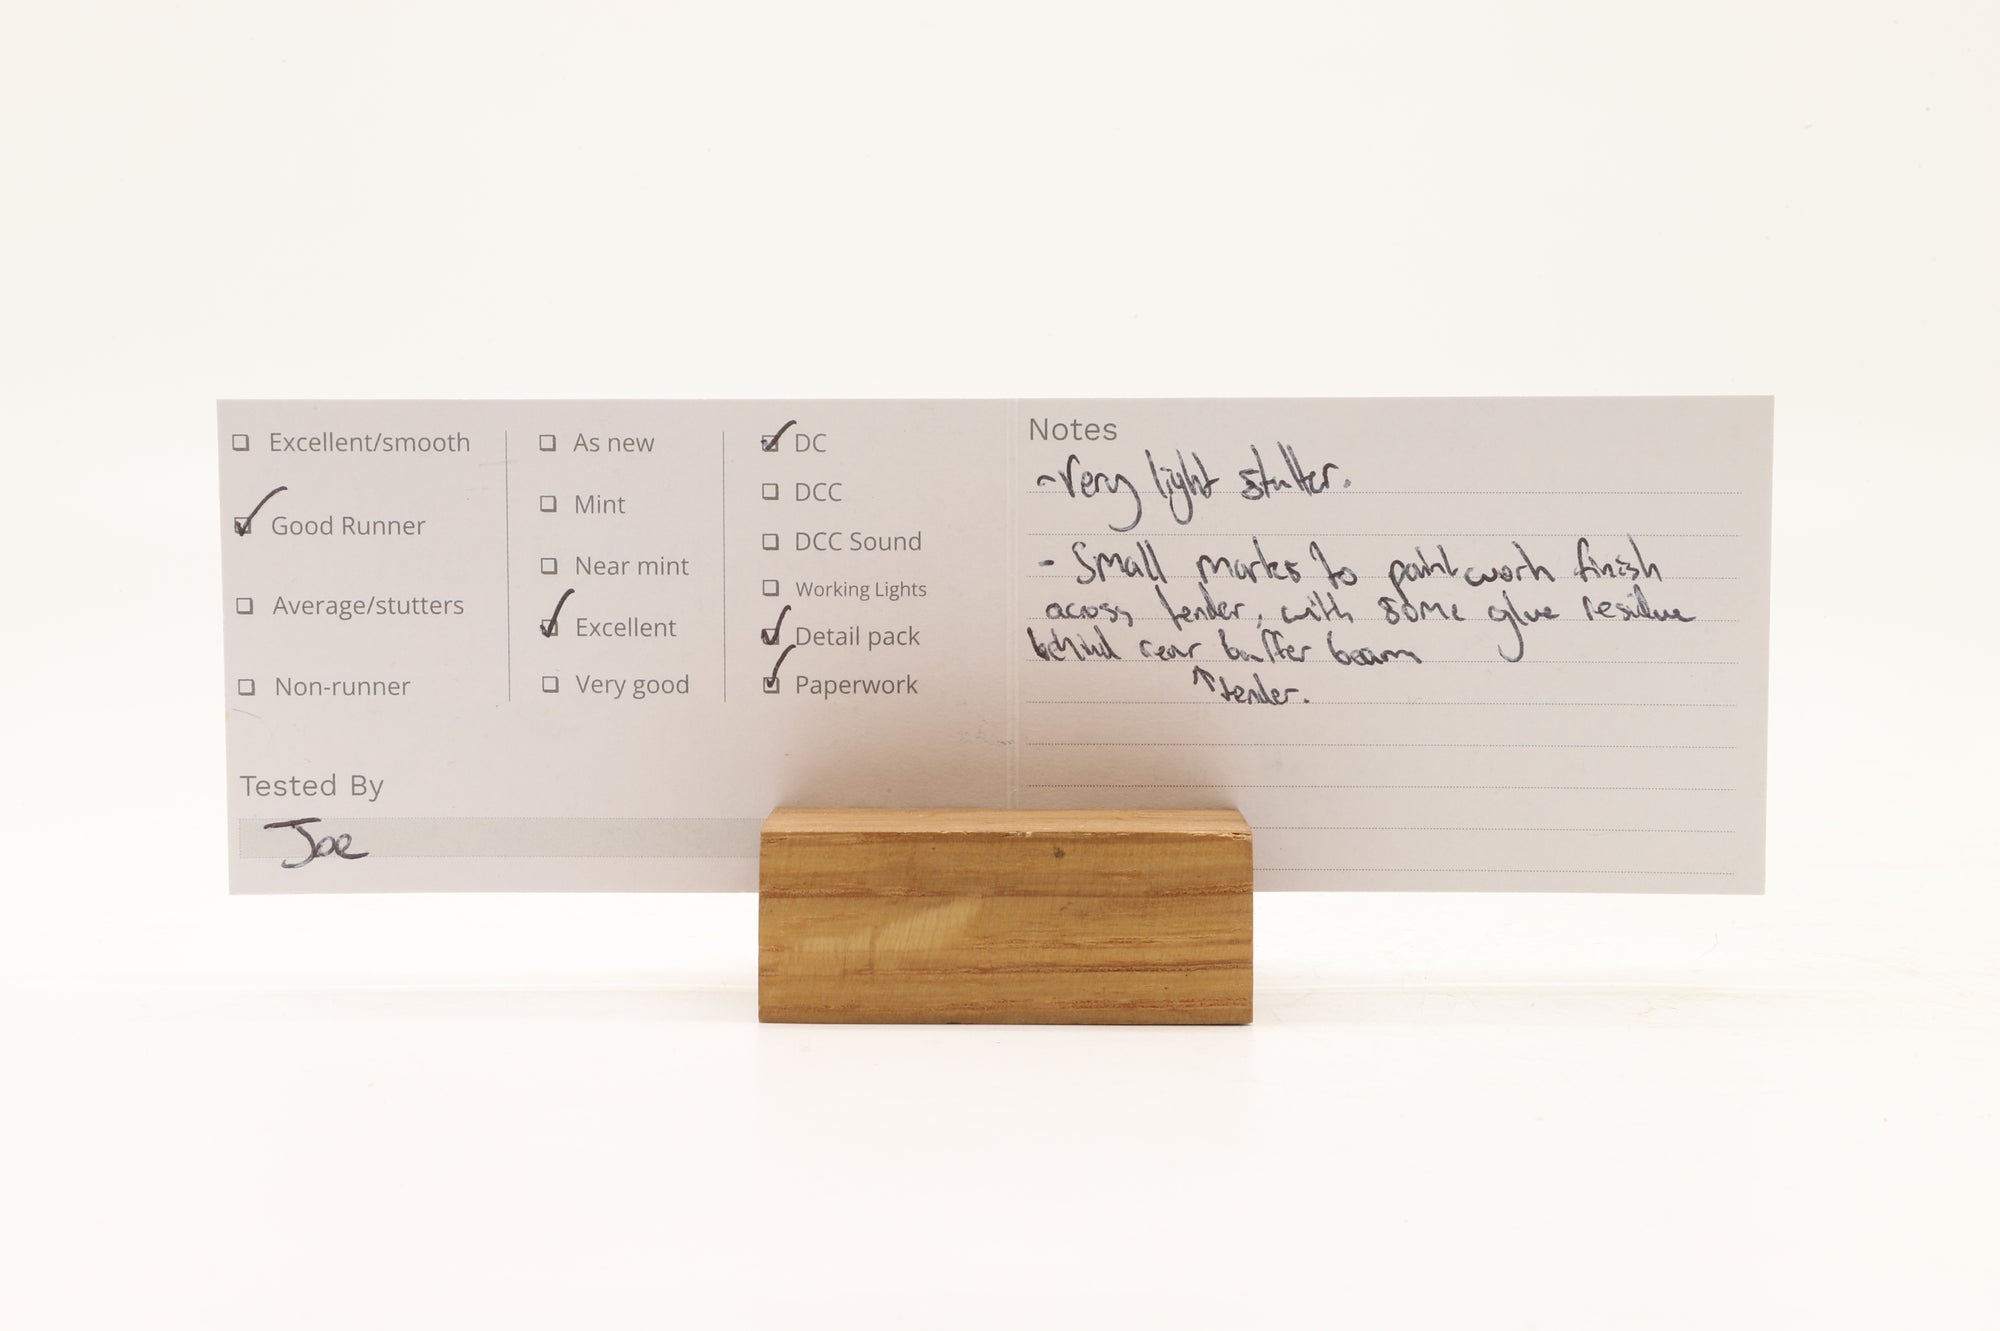 Excellent/smooth
Good Runner
Average/stutters
Non-runner
As new
Mint
Near mint
Excellent
Very good
DC
DCC
DCC Sound
Working Lights
Detail pack
Paperwork
Tested By
Joe
Notes
- Very light stutter.
- Small marks to paintwork finish
across tender, with some glue residue
behind rear buffer beam
↑ tender.